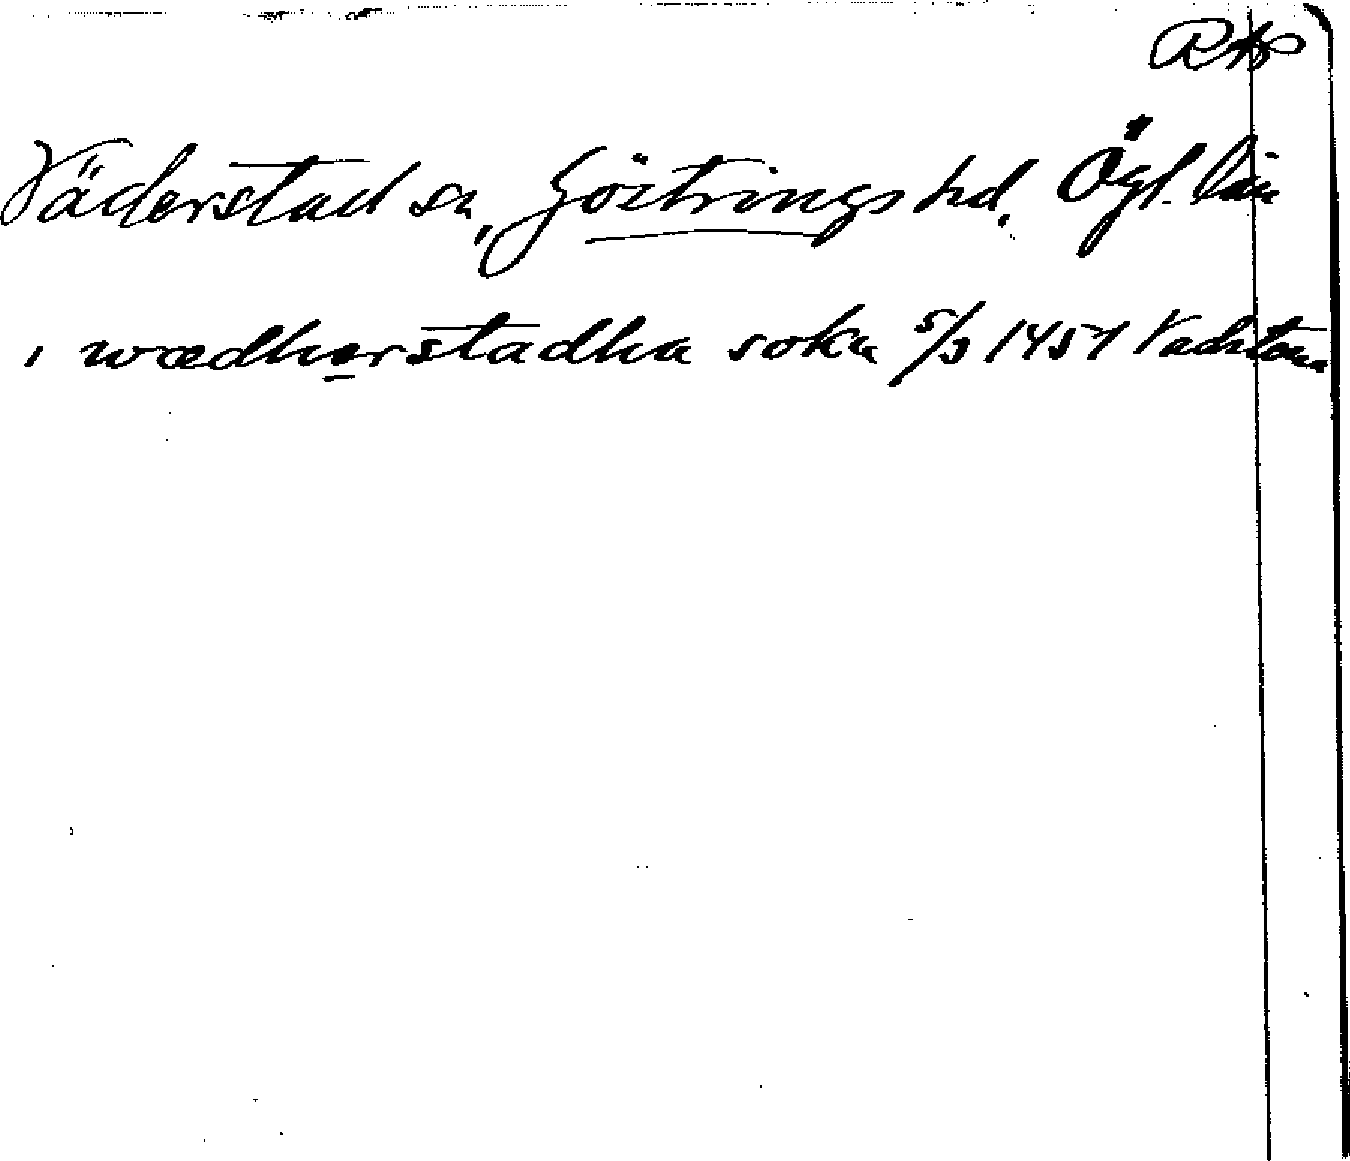 RAp
Väderstad sn, Göstrings hd. Ögl. län
i wædherstadha sokn 5/3 1451 Vadstena